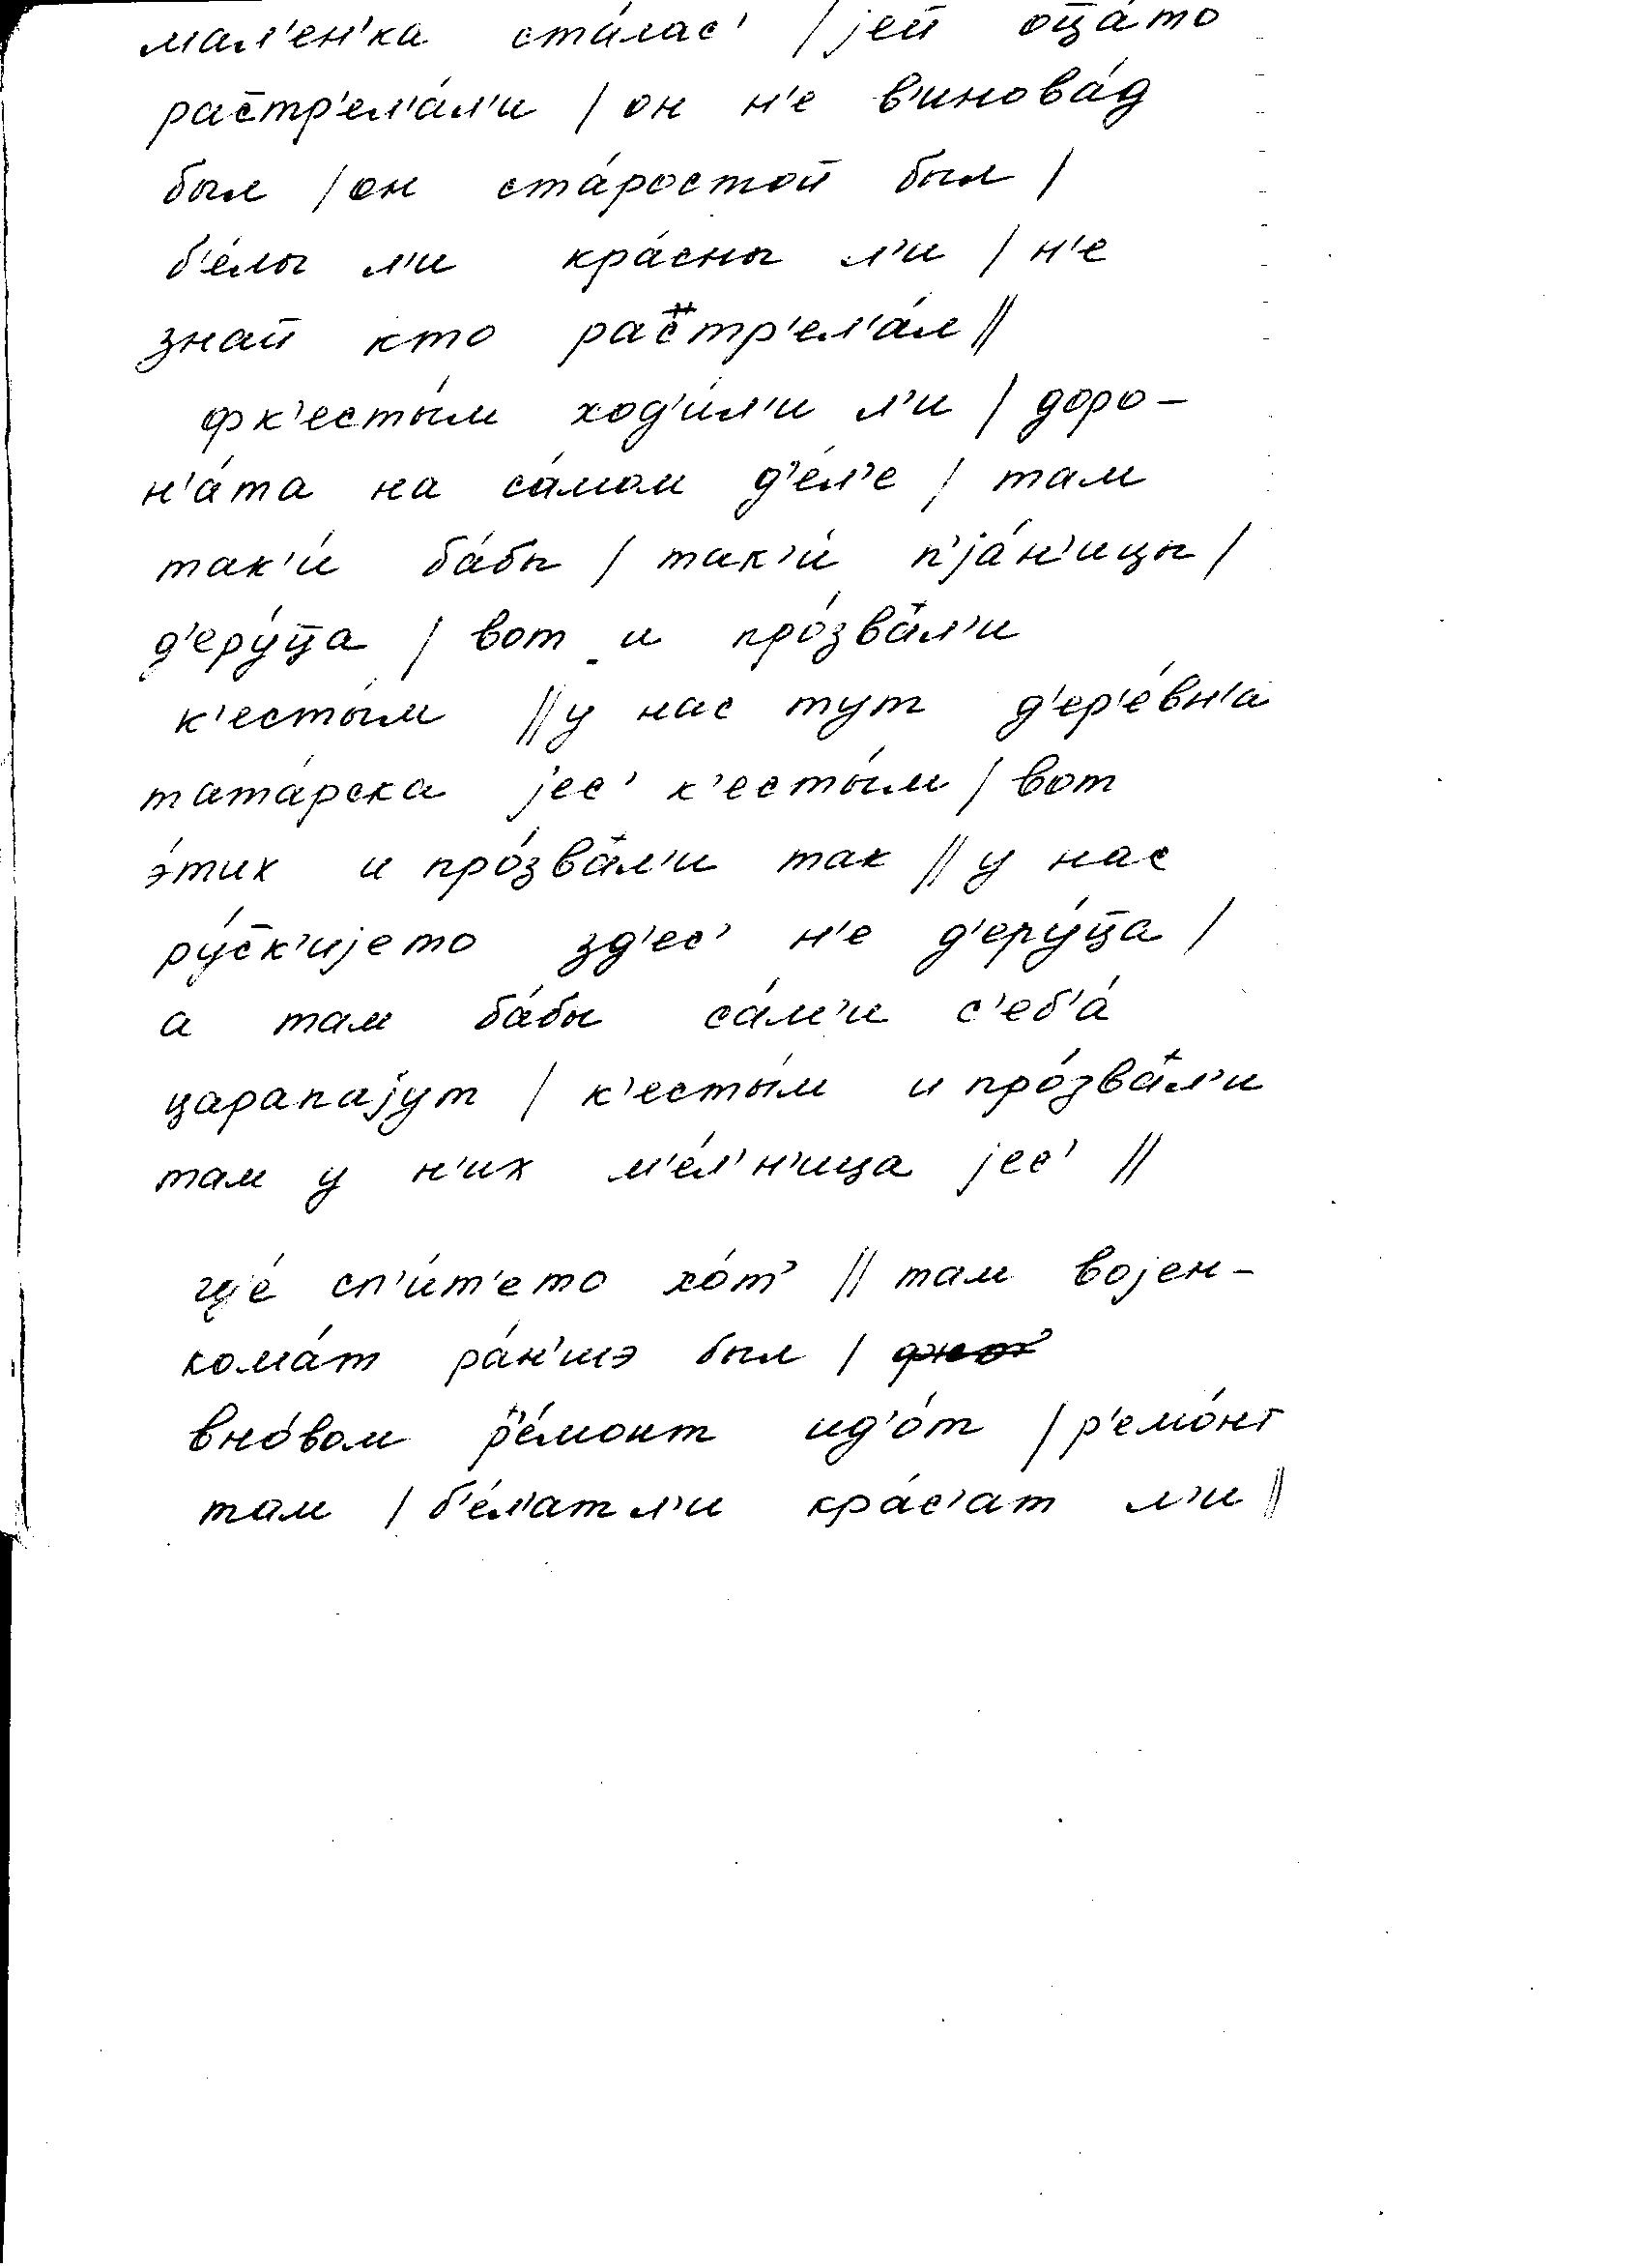 мал'ен'ка ста́лас' / јей оц̄а́то
рас̄тр'ел'а́л'и / он н'е в'инова́д
был / он ста́ростой был /
б'е́лы л'и кра́сны л'и / н'е
знай кто рас̄тр'ел'а́л //
фк'есты́м ход'и́л'и л'и / доро-
н'а́та на са́мом д'е́л'е / там
так'и́ ба́бы / так'и́ п'ја́н'ицы /
д'еру́ц̄а / вот и про́звал'и
к'есты́м // у нас тут д'ер'е́вн'а
тата́рска јес' к'есты́м / вот
э́тих и про́звал'и так // у нас
ру́с̄к'ијето зд'ес' н'е д'еру́ц̄а /
а там ба́бы са́м'и с'еб'а́
царапајут / к'есты́м и про́звал'и
там у н'их м'е́л'н'ица јес' //
сп'и́т'ето хо́т' // там војен-
кома́т ра́н'шэ был /
вно́вом р'е́монт ид'о́т / р'емо́нт
там / б'е́л'ат л'и кра́с'ат л'и //